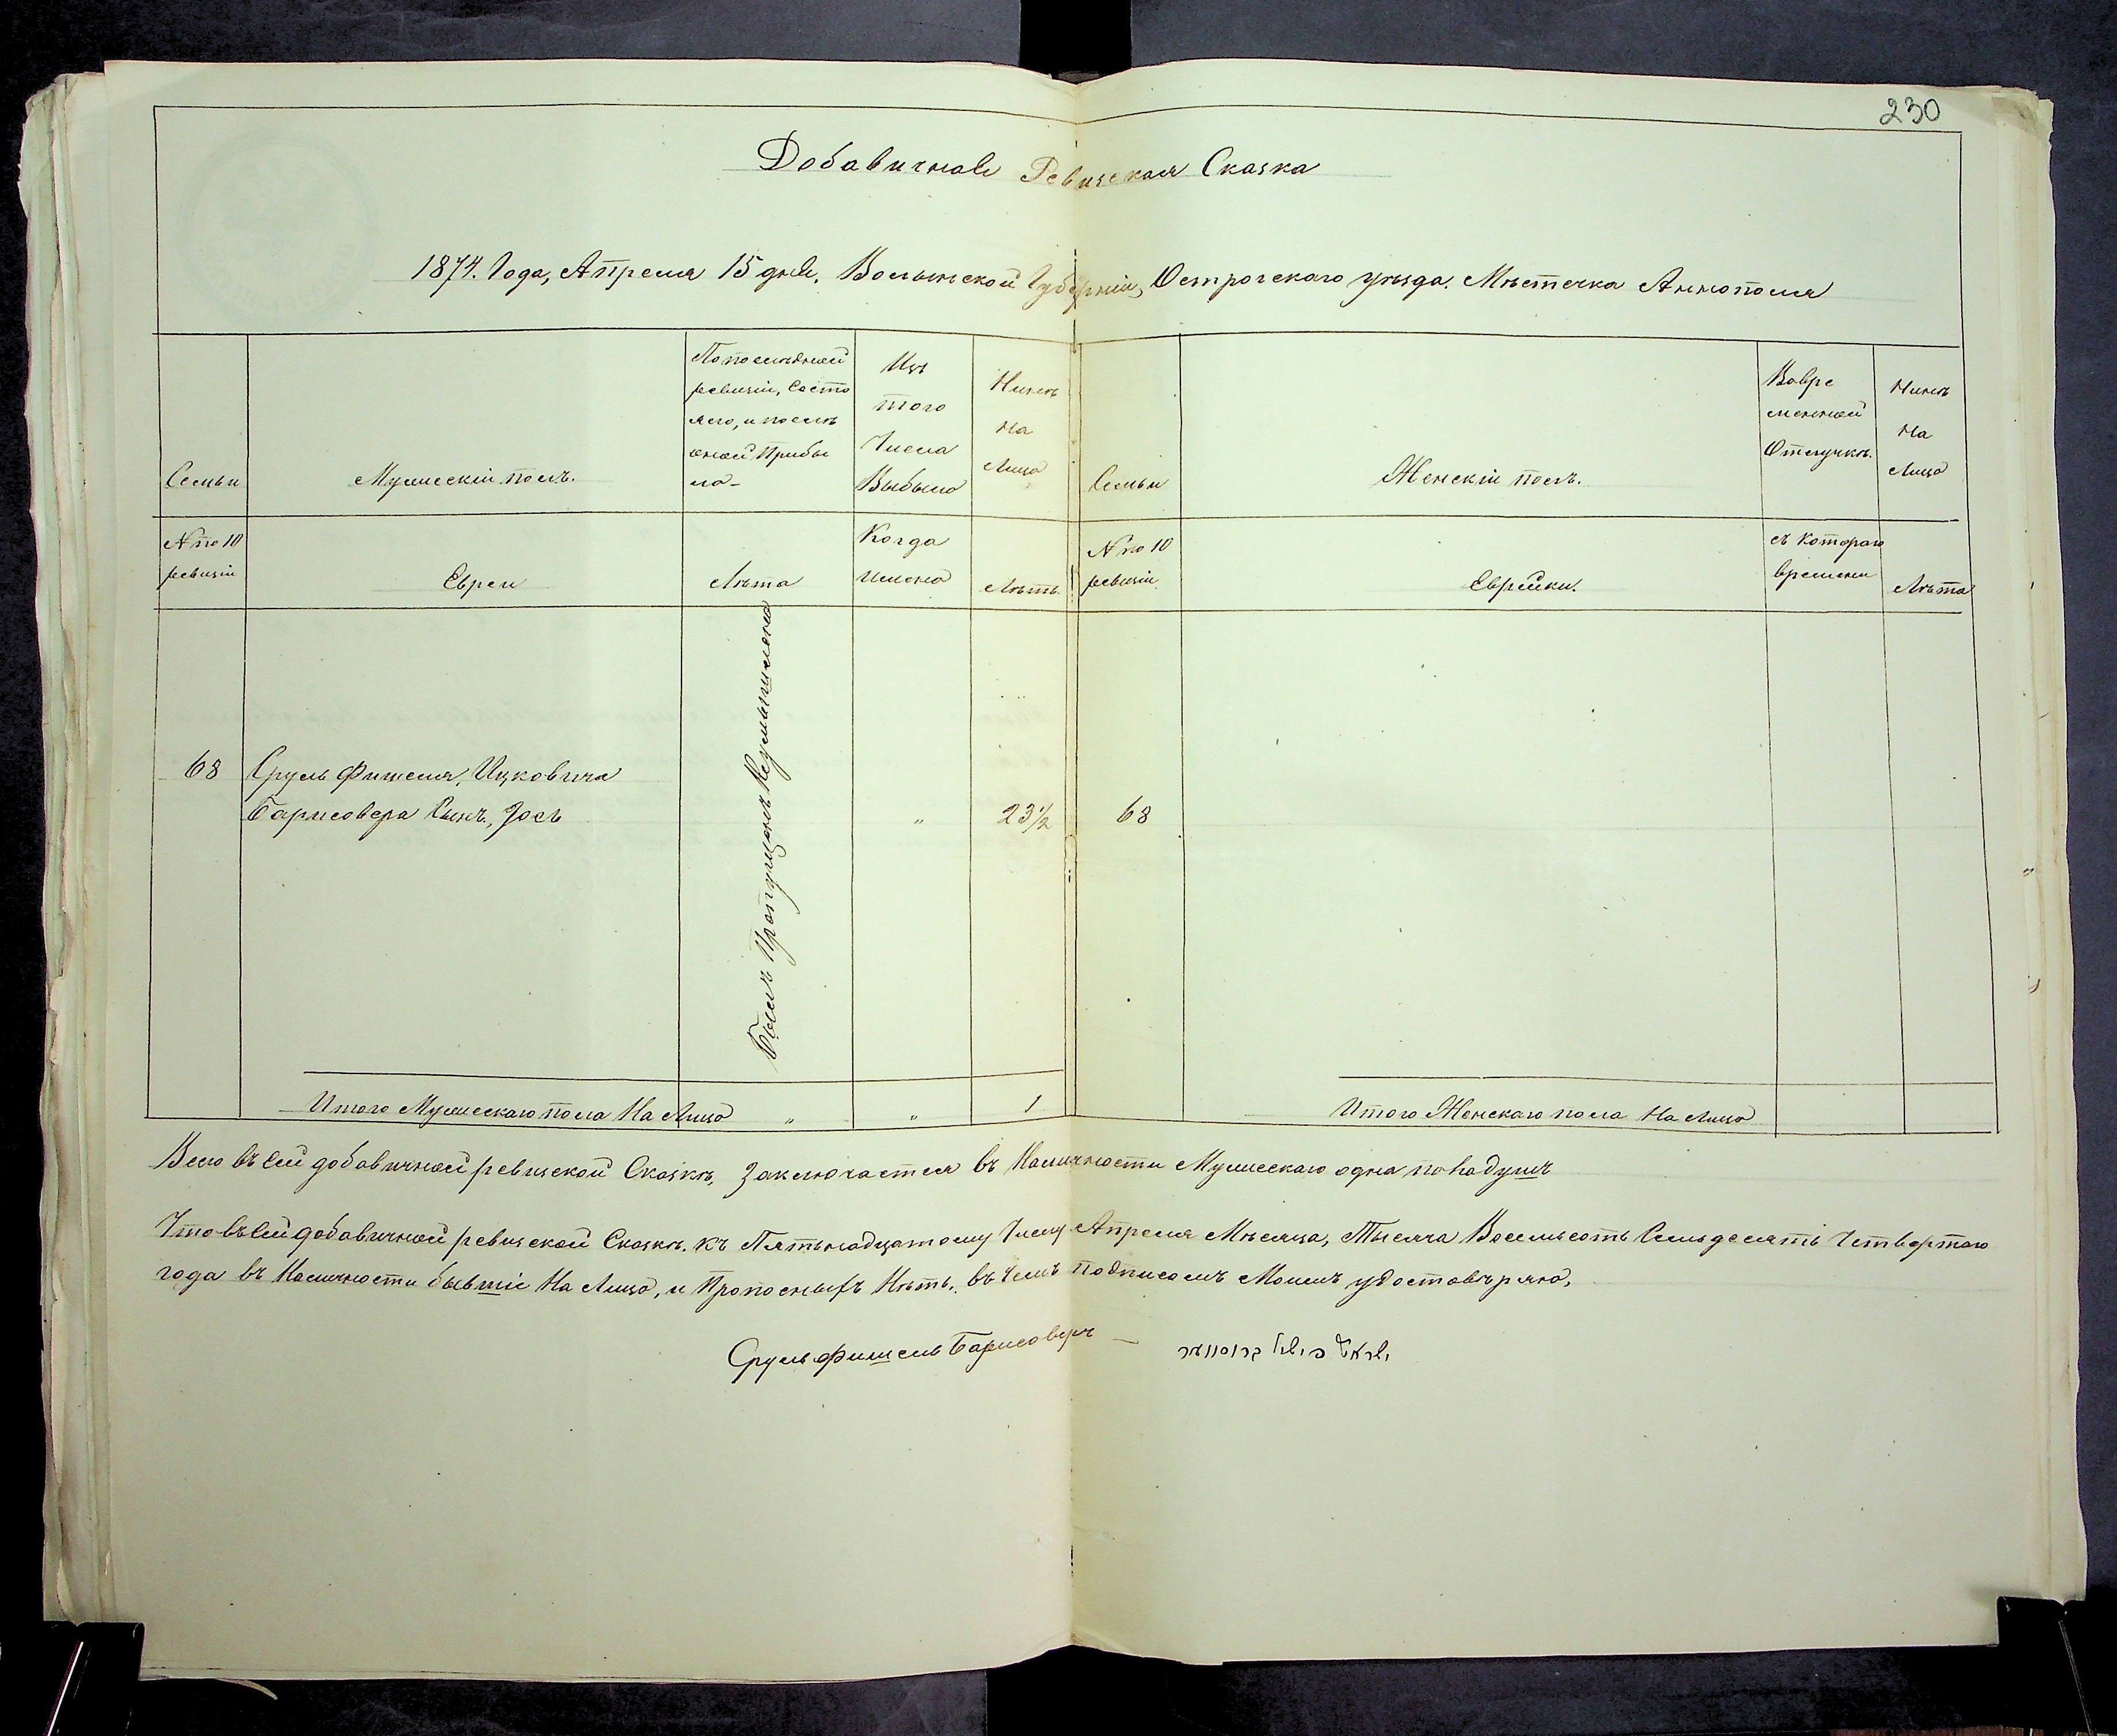 230
Добавичная Ревизская Сказка
1874. Года, Апреля 15 дня, Волынской Губерніи, Острогскаго уѣзда. Мѣстечка Аннополя
Семьи
Мужескій полъ.
По послѣдней
ревизіи, Состо
яло, и послѣ
оной Прибы
ло-
Изъ
того
Числа
Выбыло
Нынѣ
На
Лицо
Семьи
Женскій полъ.
Вовре
менной
Отлучкѣ.
Нынѣ
На
Лицо
N по 10
ревизіи
Евреи
Лѣта
Когда
имено
Лѣтъ.
N по 10
ревизіи
Еврейки.
съ котораго
времени
Лѣта
68
Сруль Фишеля, Ицковича
Барисовера Сынъ, Іосъ
Былъ Пропущенъ Неумышлено
"
23 1/2
68
Итого Мужескаго пола На Лицо
"
"
1
Итого Женскаго пола На Лицо
Всего въ сей добавичной ревизской Сказкѣ, Заключается въ Наличности Мужескаго одна
Что въ Сей добавичной ревизской Сказкѣ. къ Пятьнадцатому Числу Апреля Мѣсяца, Тысяча Восемьсотъ Семьдесять Четвертаго
года въ Наличности бывшіе На Лицо, и Прописныхъ Нѣтъ, въ Чемъ подписомъ Моимъ удостовѣряю,
Сруль Фишель Барисоверъ —
ישראל פישל